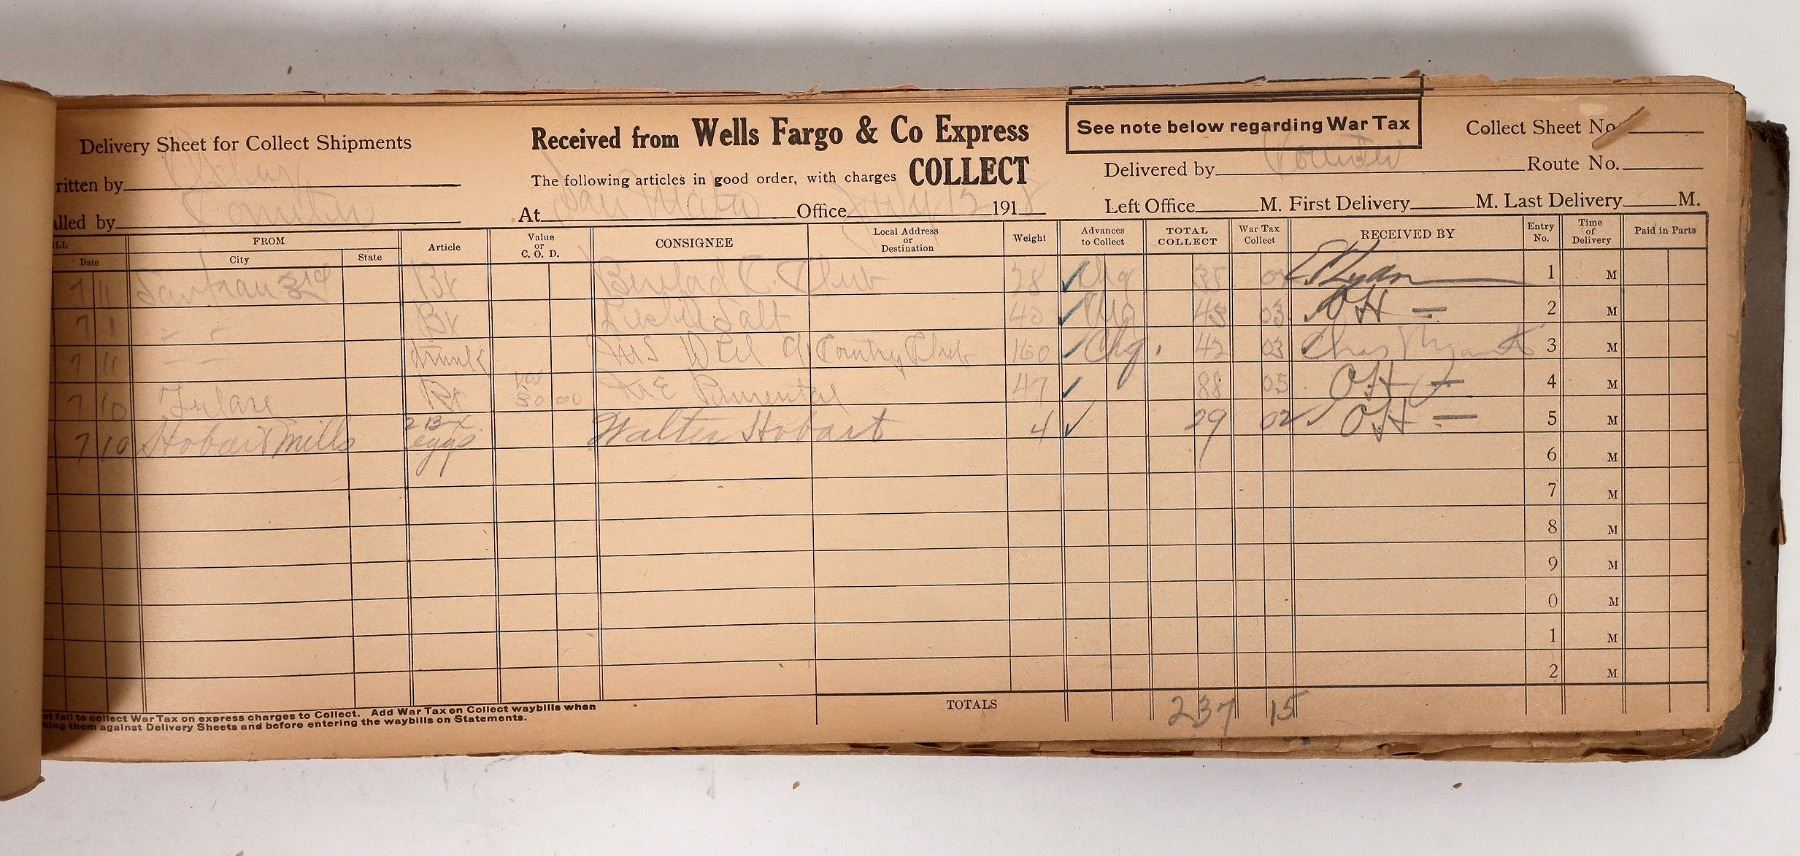 Delivery Sheet for Collect Shipments
Received from Wells Fargo & Co Express
COLLECT
The following articles in good order, with charges
See note below regarding War Tax
Collect Sheet No.
Delivered by Counter
Route No.
ritten by
alled by Counter
At San Mateo Office July 12 1918
Left Office M. First Delivery M. Last Delivery M.
Date FROM City State Article Value or C. O. D. CONSIGNEE Local Address or Destination Weight Advances to Collect TOTAL COLLECT War Tax Collect RECEIVED BY Entry No. Time of Delivery Paid in Parts
7 11 San Fran 3rd Bx C. Club 28 ✓ Chg 35 02 Ryan 1 M
7 1 " " Bx Leslie Salt 40 ✓ Chg 43 03 OH — 2 M
7 11 " " trunk Mrs Weil Country Club 160 ✓ Chg. 42 03 Chas 3 M
7 10 Tulare Bx Val 50 00 Pimental 47 ✓ 88 05 OH 4 M
7 10 Hobart Mills 2 Bx eggs Walter Hobart 4 ✓ 29 02 OH — 5 M
6 M
7 M
8 M
9 M
0 M
1 M
2 M
TOTALS 237 15
t fail to collect War Tax on express charges to Collect. Add War Tax on Collect waybills when
king them against Delivery Sheets and before entering the waybills on Statements.